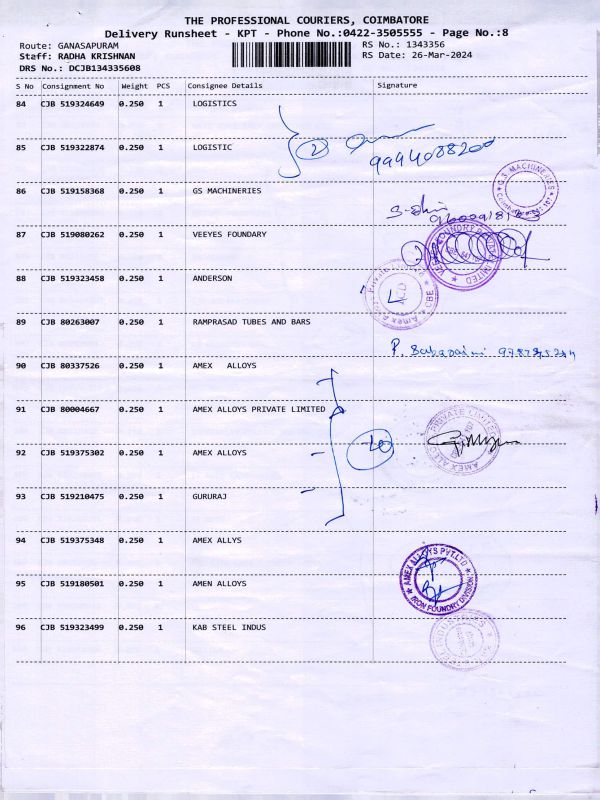 THE PROFESSIONAL COURIERS, COIMBATORE
Delivery Runsheet - KPT - Phone No.:0422-3505555 - Page No.:8
Route: GANASAPURAM RS No.: 1343356
Staff: RADHA KRISHNAN RS Date: 26-Mar-2024
DRS No.: DCJB134335608
S No Consignment No Weight PCS Consignee Details Signature
84 CJB 519324649 0.250 1 LOGISTICS
85 CJB 519322874 0.250 1 LOGISTIC
9994088200
86 CJB 519158368 0.250 1 GS MACHINERIES
G.S. MACHINERIES
87 CJB 519080262 0.250 1 VEEYES FOUNDARY
88 CJB 519323458 0.250 1 ANDERSON
89 CJB 80263007 0.250 1 RAMPRASAD TUBES AND BARS
90 CJB 80337526 0.250 1 AMEX ALLOYS
91 CJB 80004667 0.250 1 AMEX ALLOYS PRIVATE LIMITED
92 CJB 519375302 0.250 1 AMEX ALLOYS
93 CJB 519210475 0.250 1 GURURAJ
94 CJB 519375348 0.250 1 AMEX ALLYS
AMEX ALLOYS PVT.LTD
IRON FOUNDRY DIVISION
95 CJB 519180501 0.250 1 AMEN ALLOYS
96 CJB 519323499 0.250 1 KAB STEEL INDUS